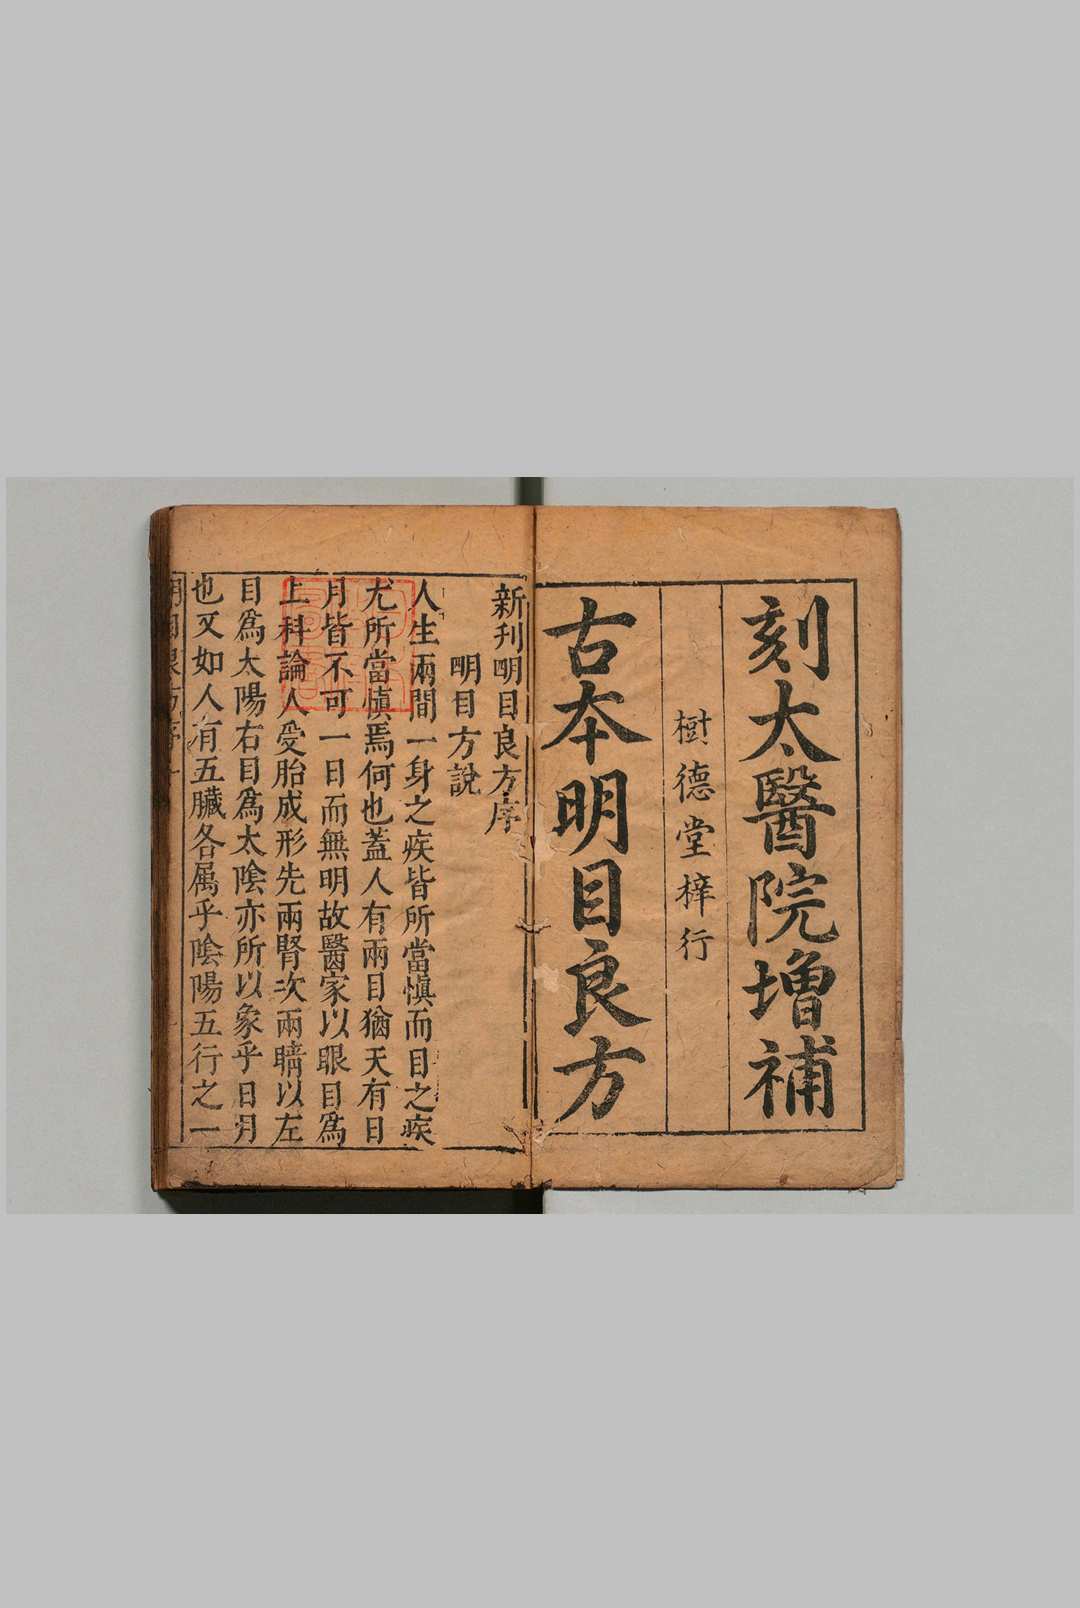 刻太醫院增補
樹德堂梓行
古本明目良方
新刊明目良方序
明目方說
人生兩間一身之疾皆所當慎而目之疾
尤所當慎焉何也蓋人有兩目猶天有日
月皆不可一日而無明故醫家以眼目爲
上科論人受胎成形先兩腎次兩睛以左
目爲太陽右目爲太陰亦所以象乎日月
也又如人有五臟各属乎陰陽五行之一